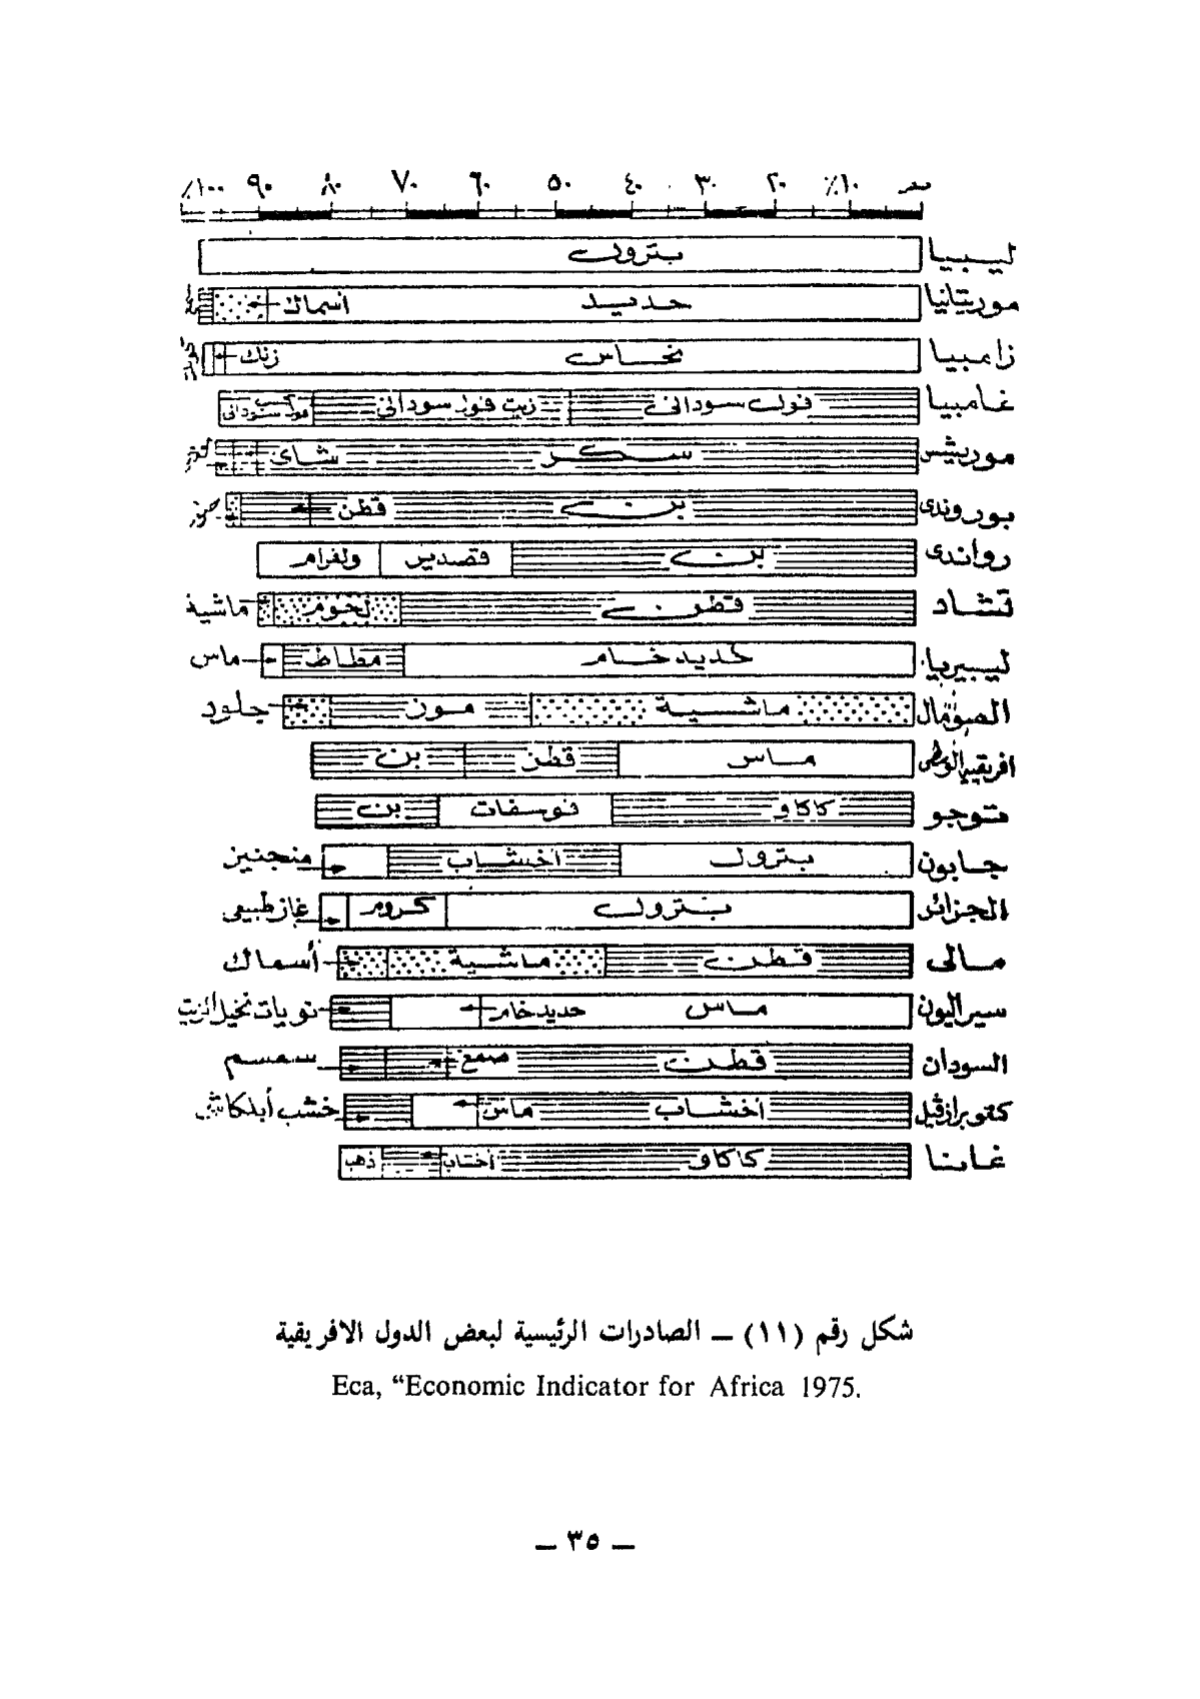 صفر ١٠٪ ٢٠ ٣٠ ٤٠ ٥٠ ٦٠ ٧٠ ٨٠ ٩٠ ١٠٠٪
ليبيا بترول
موريتانيا حديد أسماك
زامبيا نحاس زنك
غامبيا فول سودانى زيت فول سودانى كسب فول سودانى
موريشس سكر شاى
بوروندى بن قطن
رواندى بن قصدير ولفرام
تشاد قطن لحوم ماشية
ليبيريا حديد خام مطاط ماس
الصومال ماشية موز جلود
افريقيا الوسطى ماس قطن بن
توجو كاكاو فوسفات بن
جابون بترول أخشاب منجنيز
الجزائر بترول كروم غاز طبيعى
مالى قطن ماشية أسماك
سيراليون ماس حديد خام نويات نخيل الزيت
السودان قطن صمغ سمسم
كنغو برازفيل أخشاب ماس خشب أبلكاش
غانا كاكاو أخشاب ذهب
شكل رقم (١١) – الصادرات الرئيسية لبعض الدول الافريقية
Eca, “Economic Indicator for Africa 1975.
– ٣٥ –